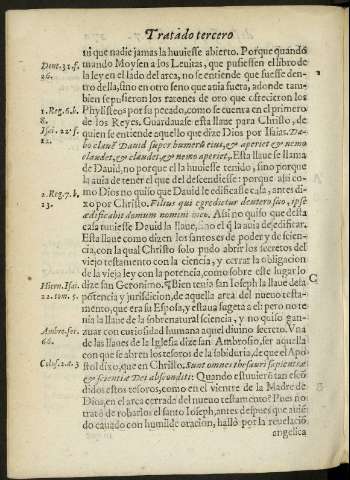 Tratado tercero
ui que nadie jamas la huuiesse abierto. Porque quando
Deut. 31. f. 26.
mando Moysen a los Leuitas, que pusiessen el libro de
la ley en el lado del arca, no se entiende que fuesse den-
tro della, sino en otro seno que auia fuera, adonde tam-
bien se pusieron los ratones de oro que ofrecieron los
1. Reg. 6. b. 8.
Phylisteos por su pecado, como se cuenta en el primero
de los Reyes. Guardauase esta llaue para Christo, de
Isai. 22. 22.
quien se entiende aquello que dize Dios por Isaias. Da-
bo clauē Dauid super humerū eius, & aperiet & nemo
claudet, & claudet, & nemo aperiet. Esta llaue se llama
de Dauid, no porque el la huuiesse tenido, sino porque
la auia de tener el que del descendiesse: porque assi co-
2. Reg. 7. b. 13.
mo Dios no quiso que Dauid le edificasse casa, antes di-
xo por Christo. Filius qui egredietur de utero tuo, ipse
ædificabit domum nomini meo. Assi no quiso que desta
casa tuuiesse Dauid la llaue, sino el q̄ la auia de edificar.
Esta llaue como dizen los santos es de poder y de scien-
cia, con la qual Christo solo pudo abrir los secretos del
viejo testamento con la ciencia, y cerrar la obligacion
de la vieja ley con la potencia, como sobre este lugar lo
Hiern. Isai. 22. tom. 5.
dize san Geronimo. ¶ Bien tenia san Ioseph la llaue de la
C
potencia y jurisdicion, de aquella arca del nuevo testa-
mento, que era su Esposa, y estaua sugeta a el: pero no te
nia la llaue de la sobrenatural sciencia, y no quiso gan-
Ambro. ser. 66.
zuar con curiosidad humana aquel diuino secreto. Vna
de las llaues de la Iglesia dize san Ambrosio, ser aquella
con que se abren los tesoros de la sabiduria, de que el Apo
Colos. 2. a. 3
stol dixo, que en Christo. Sunt omnes thesauri sapientiæ
& scientiæ Dei absconditi: Quando estuuierō tan escō
didos estos tesoros, como en el vientre de la Madre de
Dios, en el arca cerrada del nueuo testamento? Pues no
trato de robarlos el santo Ioseph, antes despues que auiē
do cauado con humilde oracion, hallò por la reuelaciō
angelica